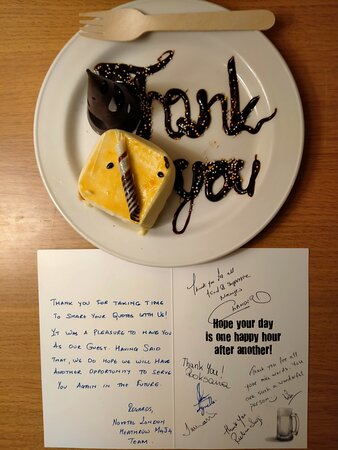 Thank
you
THANK YOU FOR TAKING TIME
TO SHARE YOUR QUOTES WITH US!
IT WAS A PLEASURE TO HAVE YOU
AS OUR GUEST. HAVING SAID
THAT, WE DO HOPE WE WILL HAVE
ANOTHER OPPORTUNITY TO SERVE
YOU AGAIN IN THE FUTURE.
REGARDS,
NOVOTEL LONDON
HEATHROW M4J4
TEAM
Thank you for all
Hope your day
is one happy hour
after another!
Thank You!
Thank you for all
your kind words. You
are such a wonderful
person
Thank you